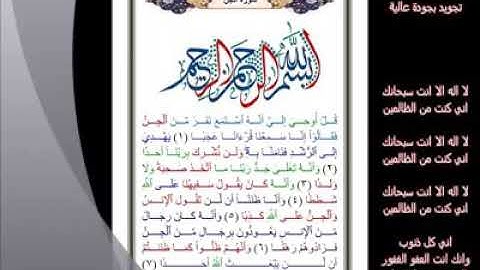 سورة الجن
بسم الله الرحمن الرحيم
قُلْ أُوحِىَ إِلَىَّ أَنَّهُ ٱسْتَمَعَ نَفَرٌ مِّنَ ٱلْجِنِّ
فَقَالُوٓا۟ إِنَّا سَمِعْنَا قُرْءَانًا عَجَبًا (١) يَهْدِىٓ
إِلَى ٱلرُّشْدِ فَـَٔامَنَّا بِهِۦ وَلَن نُّشْرِكَ بِرَبِّنَآ أَحَدًا
(٢) وَأَنَّهُۥ تَعَٰلَىٰ جَدُّ رَبِّنَا مَا ٱتَّخَذَ صَٰحِبَةً وَلَا
وَلَدًا (٣) وَأَنَّهُۥ كَانَ يَقُولُ سَفِيهُنَا عَلَى ٱللَّهِ
شَطَطًا (٤) وَأَنَّا ظَنَنَّآ أَن لَّن تَقُولَ ٱلْإِنسُ
وَٱلْجِنُّ عَلَى ٱللَّهِ كَذِبًا (٥) وَأَنَّهُۥ كَانَ رِجَالٌ
مِّنَ ٱلْإِنسِ يَعُوذُونَ بِرِجَالٍ مِّنَ ٱلْجِنِّ
فَزَادُوهُمْ رَهَقًا (٦) وَأَنَّهُمْ ظَنُّوا۟ كَمَا ظَنَنتُمْ
أَن لَّن يَبْعَثَ ٱللَّهُ أَحَدًا (٧)
تجويد بجودة عالية
لا اله الا انت سبحانك
اني كنت من الظالمين
لا اله الا انت سبحانك
اني كنت من الظالمين
لا اله الا انت سبحانك
اني كنت من الظالمين
اني كل ذنوب
وانك انت العفو الغفور